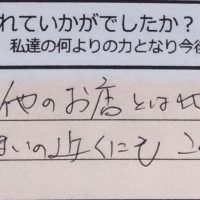 れていかがでしたか？
私達の何よりの力となり今後
他のお店とは
まいの近くにも